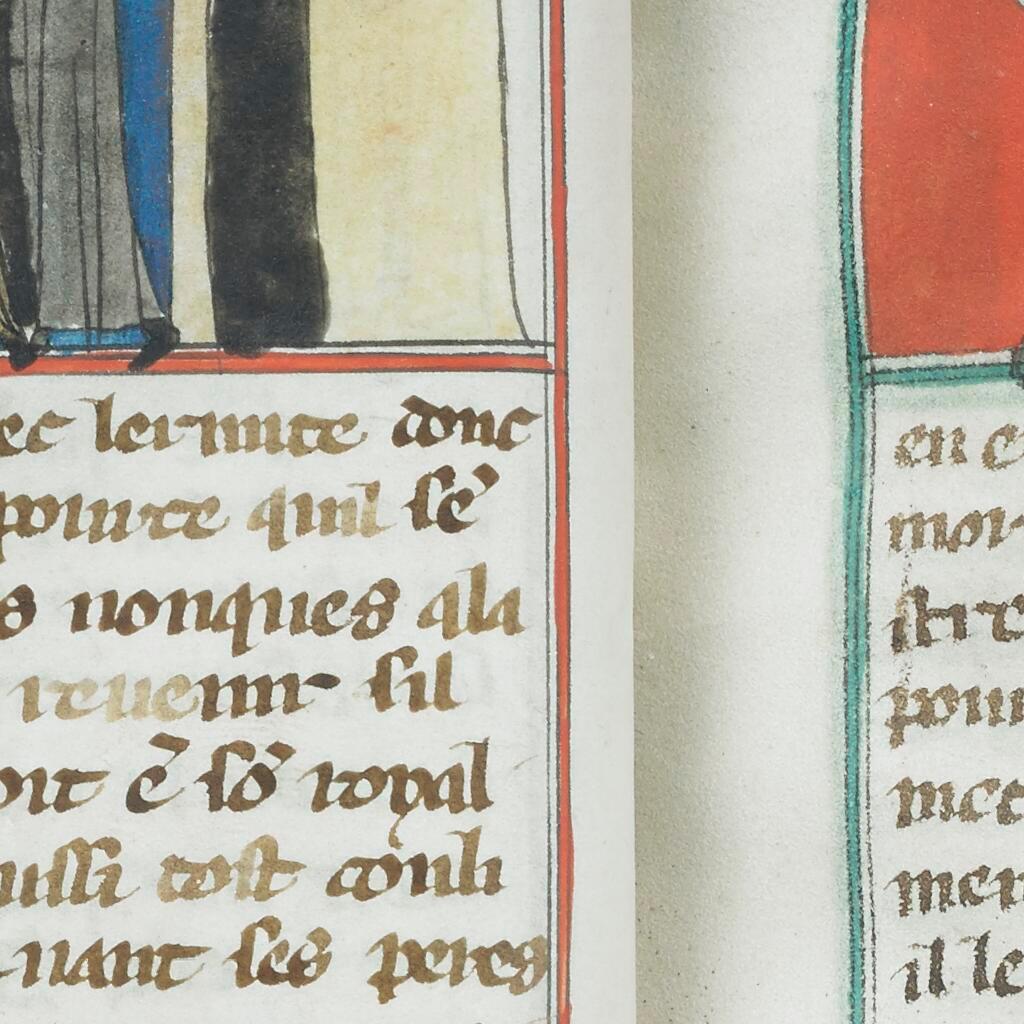 ec lermite donc
pointe quil sē
s nonques ala
reuenir sil
oit ē sō royal
ussi tost cōuli
nant ses peres
en e
mor
stre
pour
met
mer
il le